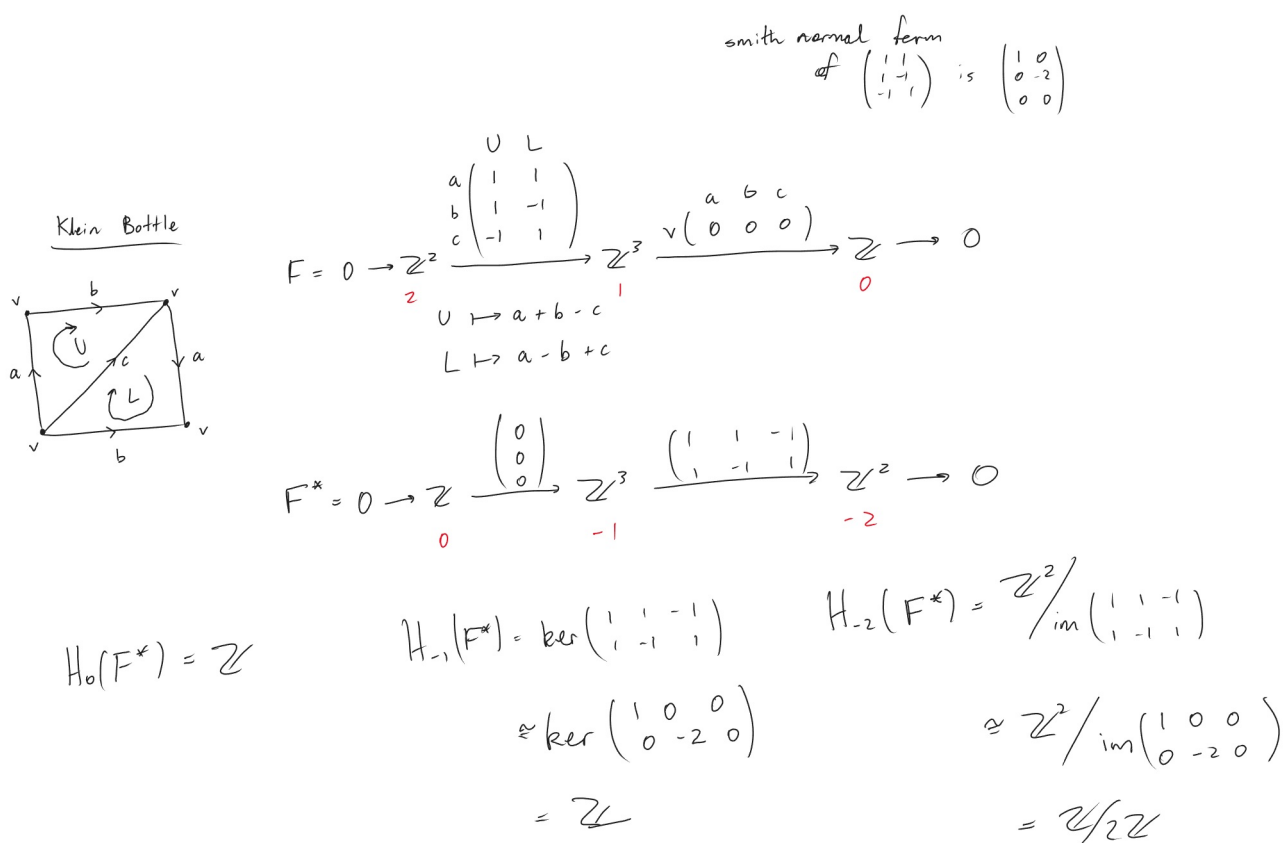 smith normal form
of ( 1 1 / 1 -1 / -1 1 ) is ( 1 0 / 0 -2 / 0 0 )
Klein Bottle
v b v
a U c a
L
v b v
U L
a ( 1 1
b 1 -1
c -1 1 )
a b c
v ( 0 0 0 )
F = 0 → ℤ² → ℤ³ → ℤ → 0
2 1 0
U ↦ a + b - c
L ↦ a - b + c
( 0 / 0 / 0 ) ( 1 1 -1 / 1 -1 1 )
F* = 0 → ℤ → ℤ³ → ℤ² → 0
0 -1 -2
H₀(F*) = ℤ
H₋₁(F*) = ker ( 1 1 -1 / 1 -1 1 )
≅ ker ( 1 0 0 / 0 -2 0 )
= ℤ
H₋₂(F*) = ℤ² / im ( 1 1 -1 / 1 -1 1 )
≅ ℤ² / im ( 1 0 0 / 0 -2 0 )
= ℤ/2ℤ